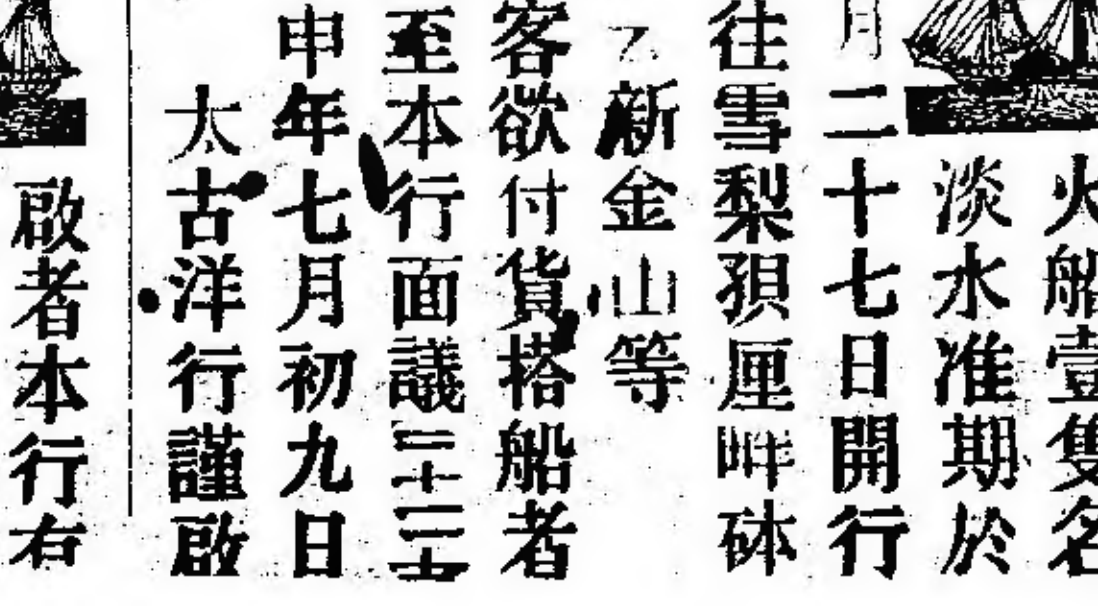 火船壹隻名
淡水准期於
月二十七日開行
往雪梨㺔厘咩砵
新金山等
客欲付貨搭船者
至本行面議
申年七月初九日
太古洋行謹啟
啟者本行右